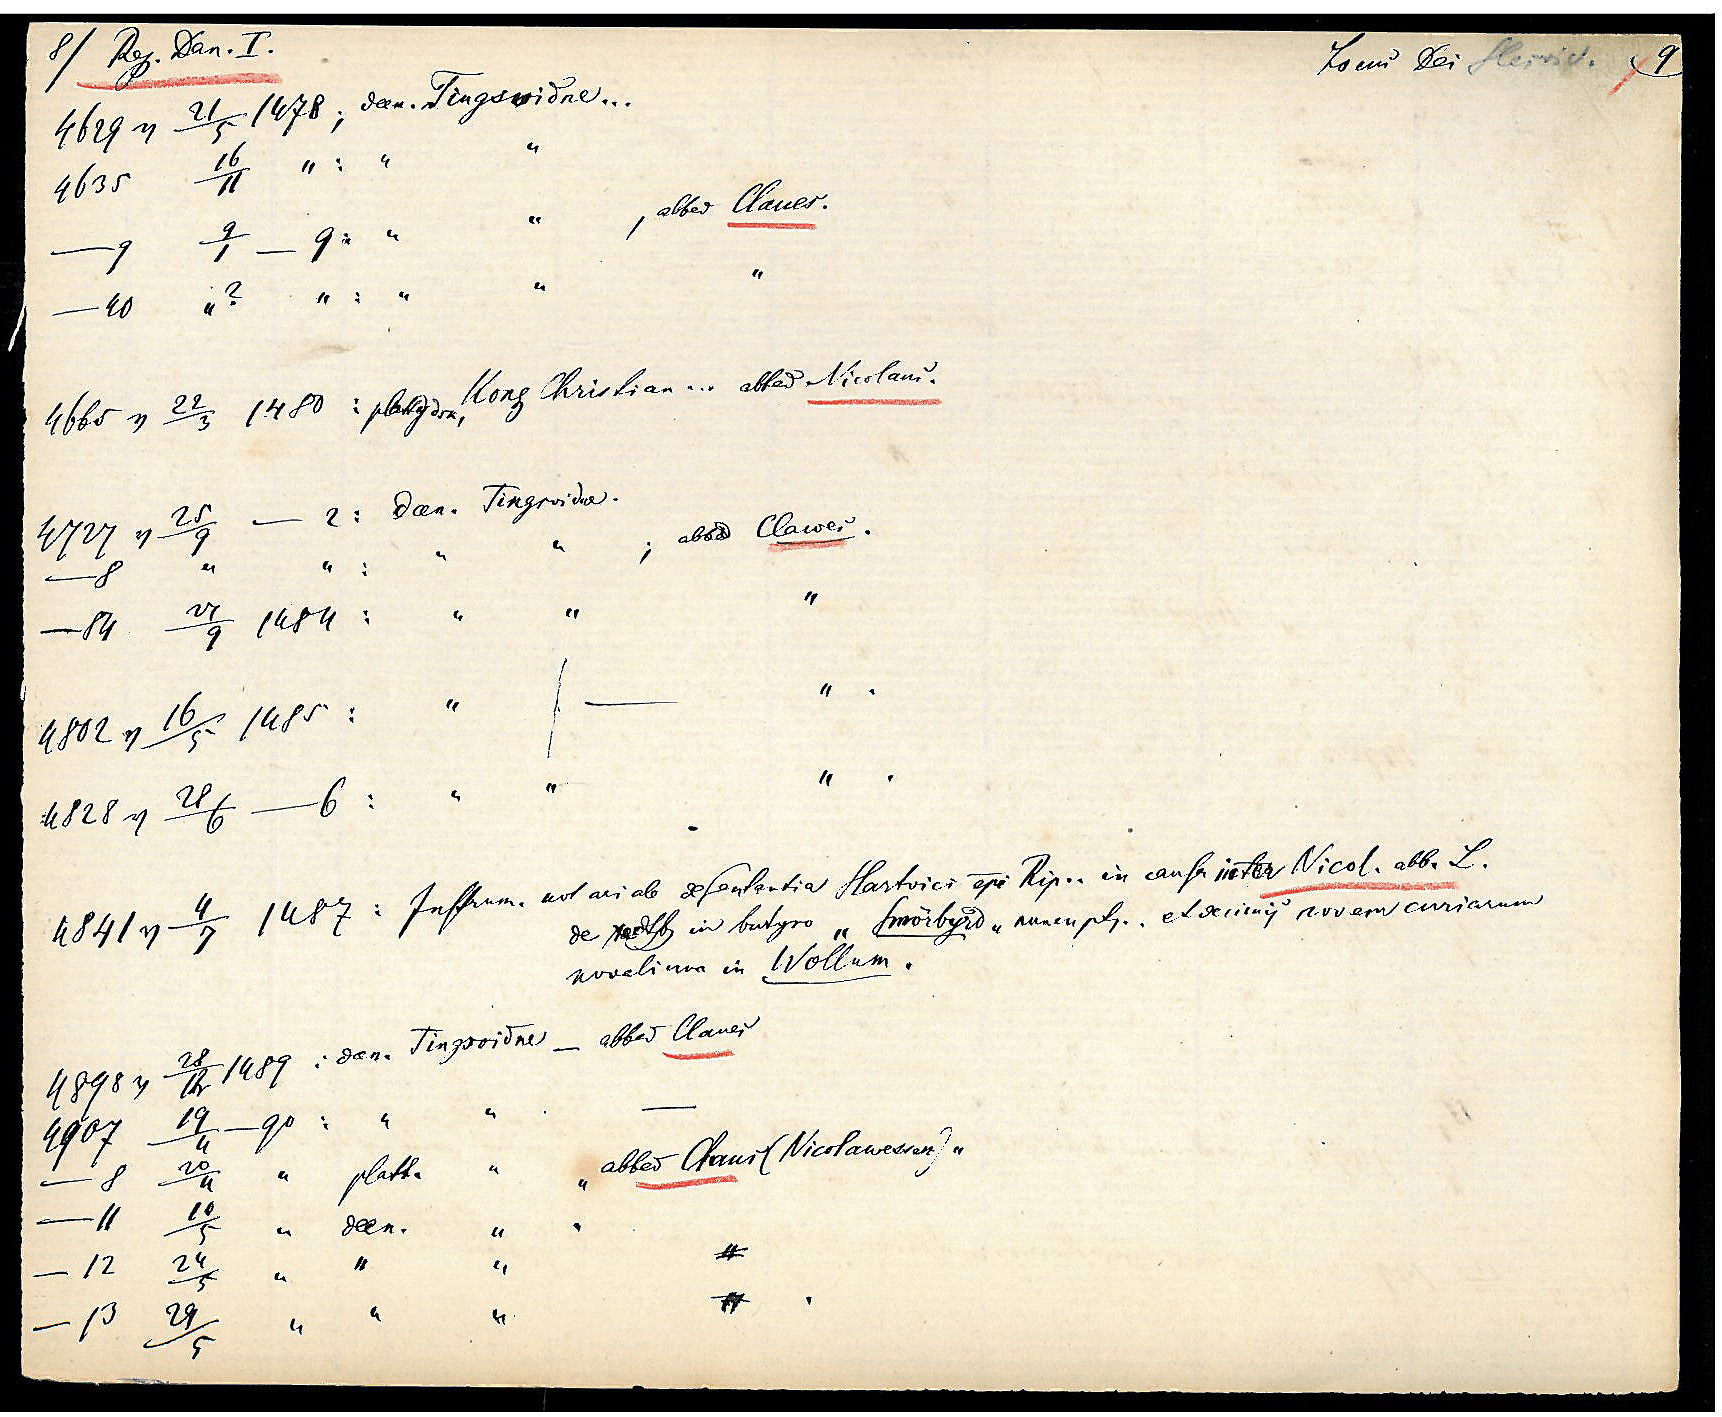 8/ Rep. Dan. I. Locus Dei 9
4629 21/5 1478; dæn. Tingsvidne...
4635 16/11 " : " "
— 9 9/1 — 9: " " , abbed Claues.
— 40 " ? " : " " "
4665 22/3 1480 : plattydsk, Kong Christian ... abbed Nicolaus.
4727 25/9 — 2 : dæn. Tingsvidne.
— 8 " " : " " ; abbed Clawes.
— 84 27/9 1484 : " " "
4802 16/5 1485 : " / — " .
4828 28/6 — 6 : " " " .
4841 4/7 1487 : Instrum. notariale de sententia Hartvici epi Rip.. in causa inter Nicol. abb. L.
de in butyro „ Smörbyrd „ nuncup. . et decimis novem curiarum
novalium in Wollum .
4898 28/12 1489 : dæn. Tingsvidne — abbed Claues
4907 19/4 — 90 : " " . —
— 8 20/4 " platt. " " abbed Claus (Nicolawessen) "
— 11 10/5 " dæn. " "
— 12 24/5 " " "
— 13 29/5 " " " .